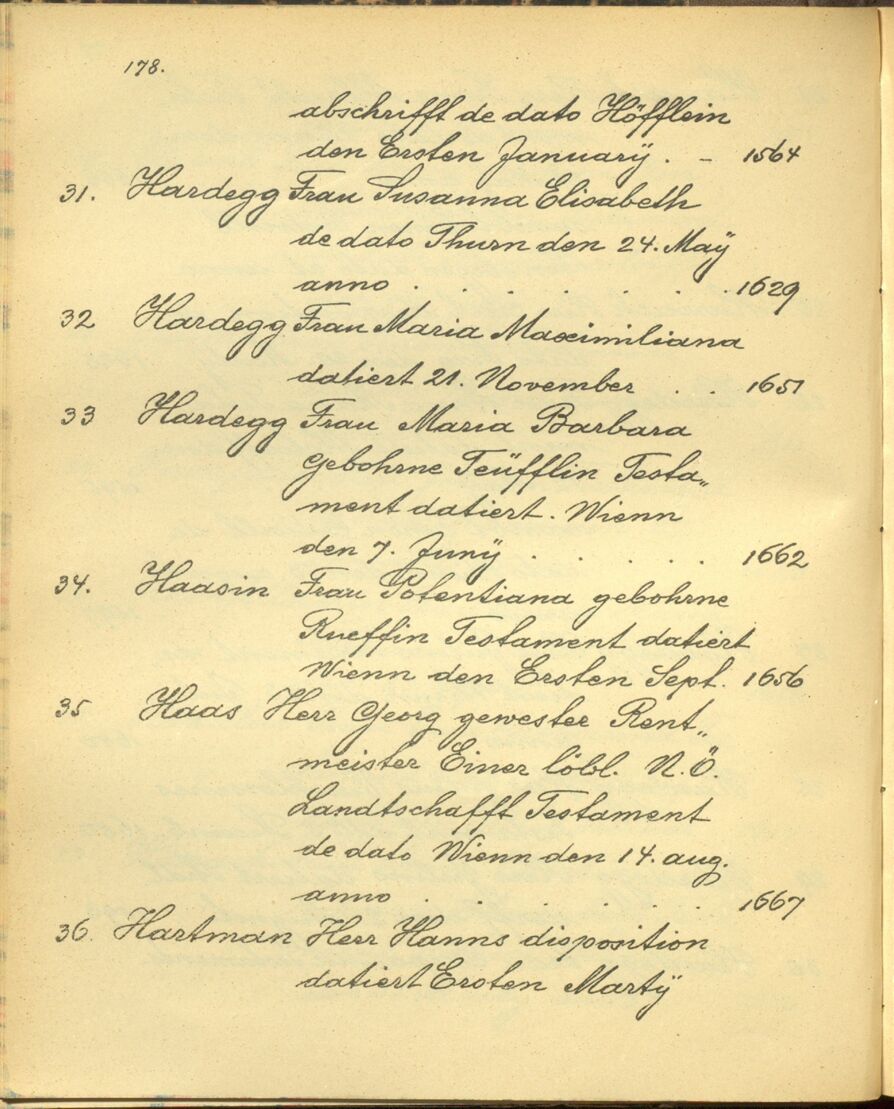 178.
abschrifft de dato Höfflein
den Ersten Januarÿ. – 1564
31. Hardegg Frau Susanna Elisabeth
de dato Thurn den 24. Maÿ
anno . . . . . . . 1629
32 Hardegg Frau Maria Maximiliana
datiert 21. November . . 1651
33 Hardegg Frau Maria Barbara
gebohrne Teüfflin Testa„
ment datiert. Wienn
den 7. Junÿ . . . . . 1662
34. Haasin Frau Potentiana gebohrne
Rueffin Testament datiert
Wienn den Ersten Sept. 1656
35 Haas Herr Georg gewester Rent„
meister Einer löbl. N.Ö.
Landtschafft Testament
de dato Wienn den 14. aug.
anno . . . . . . 1667
36. Hartman Herr Hanns disposition
datiert Ersten Martÿ